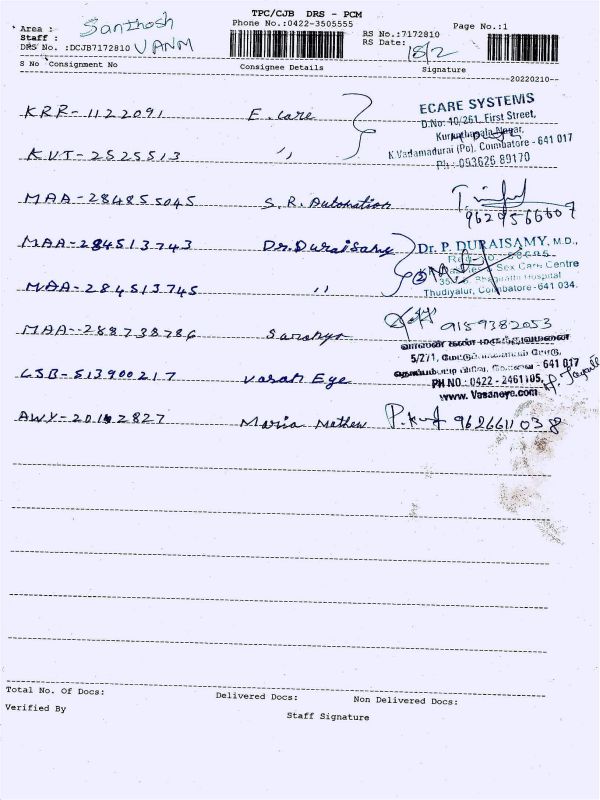 TPC/CJB DRS - PCM
Phone No.:0422-3505555
Page No.:1
Area : Santhosh
Staff :
RS No.:7172810
DRS No. :DCJB7172810 VANM
RS Date: 18/2
S No Consignment No Consignee Details Signature
20220210
KRR-1122091 E. care
ECARE SYSTEMS
D.No: 10/261, First Street,
Nagar,
K.Vadamadurai (Po), Coimbatore - 641 017
Ph : 093626 89170
KVT-2525513 "
MAA-284855045 S. R. Automation
9629566607
MAA-284513743 Dr. Duraisamy
Dr. P. DURAISAMY, M.D.,
Sex Care Centre
Hospital
Thudiyalur, Coimbatore - 641 034.
MAA-284513745 "
MAA-288738786 Saranya 9159382053
வாசன் கண் மருத்துவமனை
5/271, மேட்டுப்பாளையம் ரோடு,
கோவை - 641 017
PH.NO : 0422 - 2461105,
www. Vasaneye.com
CJB-513900217 Vasan Eye
AWY-20142827 Maria Mathew 9626611038
Total No. Of Docs: Delivered Docs: Non Delivered Docs:
Verified By
Staff Signature